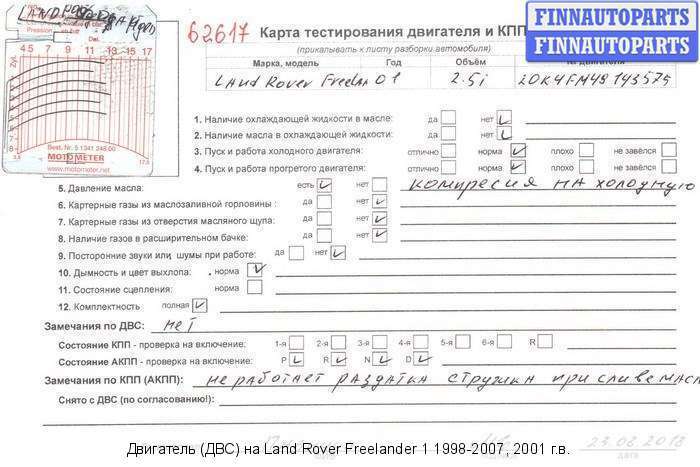 LAND
FINNAUTOPARTS
FINNAUTOPARTS
62617 Карта тестирования двигателя и КПП
(прикалывать к листу разборки автомобиля)
Марка, модель Год Объём № двигателя
Land Rover Freelan 01 2.5i 20K4FM48143575
4.5 7 9 11 13 15 17
Best. Nr. 5 1341 246 00
MOTOMETER
www.motometer.net
3.5 17.5
1. Наличие охлаждающей жидкости в масле: да нет
2. Наличие масла в охлаждающей жидкости: да нет
3. Пуск и работа холодного двигателя: отлично норма плохо не завёлся
4. Пуск и работа прогретого двигателя: отлично норма плохо не завёлся
5. Давление масла: есть нет компресия на холодную
6. Картерные газы из маслозаливной горловины : да нет
7. Картерные газы из отверстия масляного щупа: да нет
8. Наличие газов в расширительном бачке: да нет
9. Посторонние звуки или, шумы при работе: да нет
10. Дымность и цвет выхлопа: норма
11. Состояние сцепления: норма
12. Комплектность полная
Замечания по ДВС: нет
Состояние КПП - проверка на включение: 1-я 2-я 3-я 4-я 5-я 6-я R
Состояние АКПП - проверка на включение: P R N D
Замечания по КПП (АКПП): не работает раздатка стружка при сливе масл
Снято с ДВС (по согласованию!):
23.08.2013
дата
Двигатель (ДВС) на Land Rover Freelander 1 1998-2007, 2001 г.в.